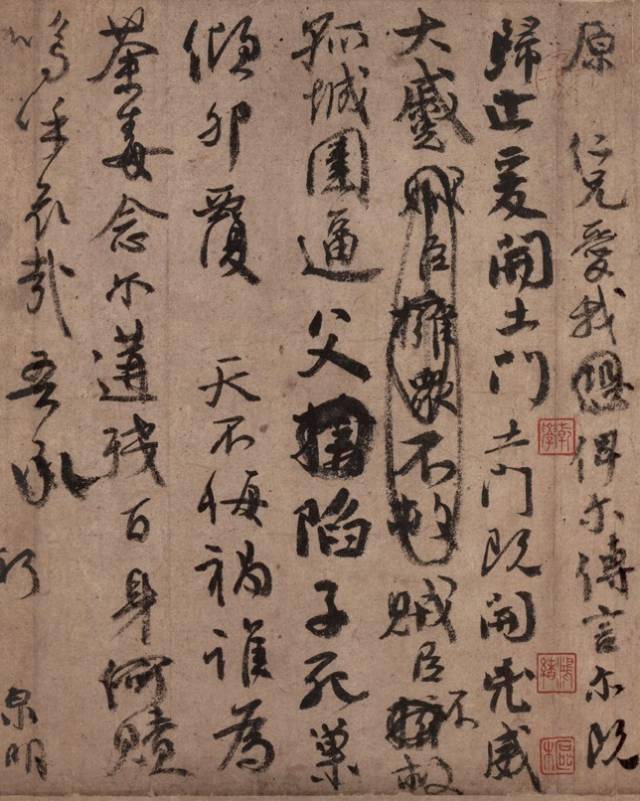 原 仁兄愛我恐俾尔傳言尔既
歸止爰開土門土門既開凶威
大蹙賊臣擁衆不救賊臣不救
孤城圍逼父陷子死巢
傾卵覆 天不悔禍誰為
荼毒念尔遘殘百身何贖
嗚呼哀哉吾承
泉明